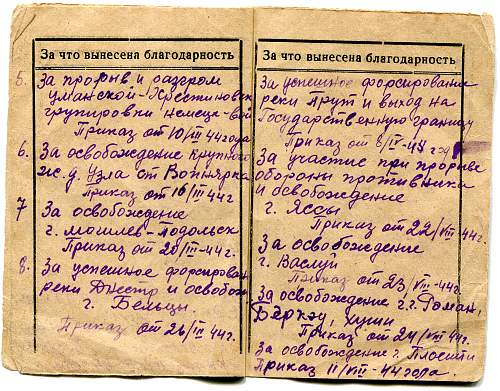 За что вынесена благодарность
5. За прорыв и разгром
уманской-Христиновск
группировки немецк-
Приказ от 10/III 44 года
6. За освобождение крупного
ж.д. узла ст Вопнярка
Приказ от 16/III 44г.
7 За освобождение
г. могилев-подольск
Приказ от 20/III-44г.
8. За успешное форсирован
реки Днестр и освобож
г. Бельцы.
Приказ от 26/III 44г.
За что вынесена благодарность
За успешное форсирование
реки Прут и выход на
Государственную границу
Приказ от 8/IV-
За участие при прорыве
обороны противника
и освобождение
г. Яссы
Приказ от 22/VIII-44г.
За освобождение
г. Васлуй
Приказ от 23/VIII-44г.
За освобождение г.г. Роман,
Бэркэу, хуши
Приказ от 24/VIII 44г.
За освобождение г. Плоешти
Приказ 11/VIII-44 года.